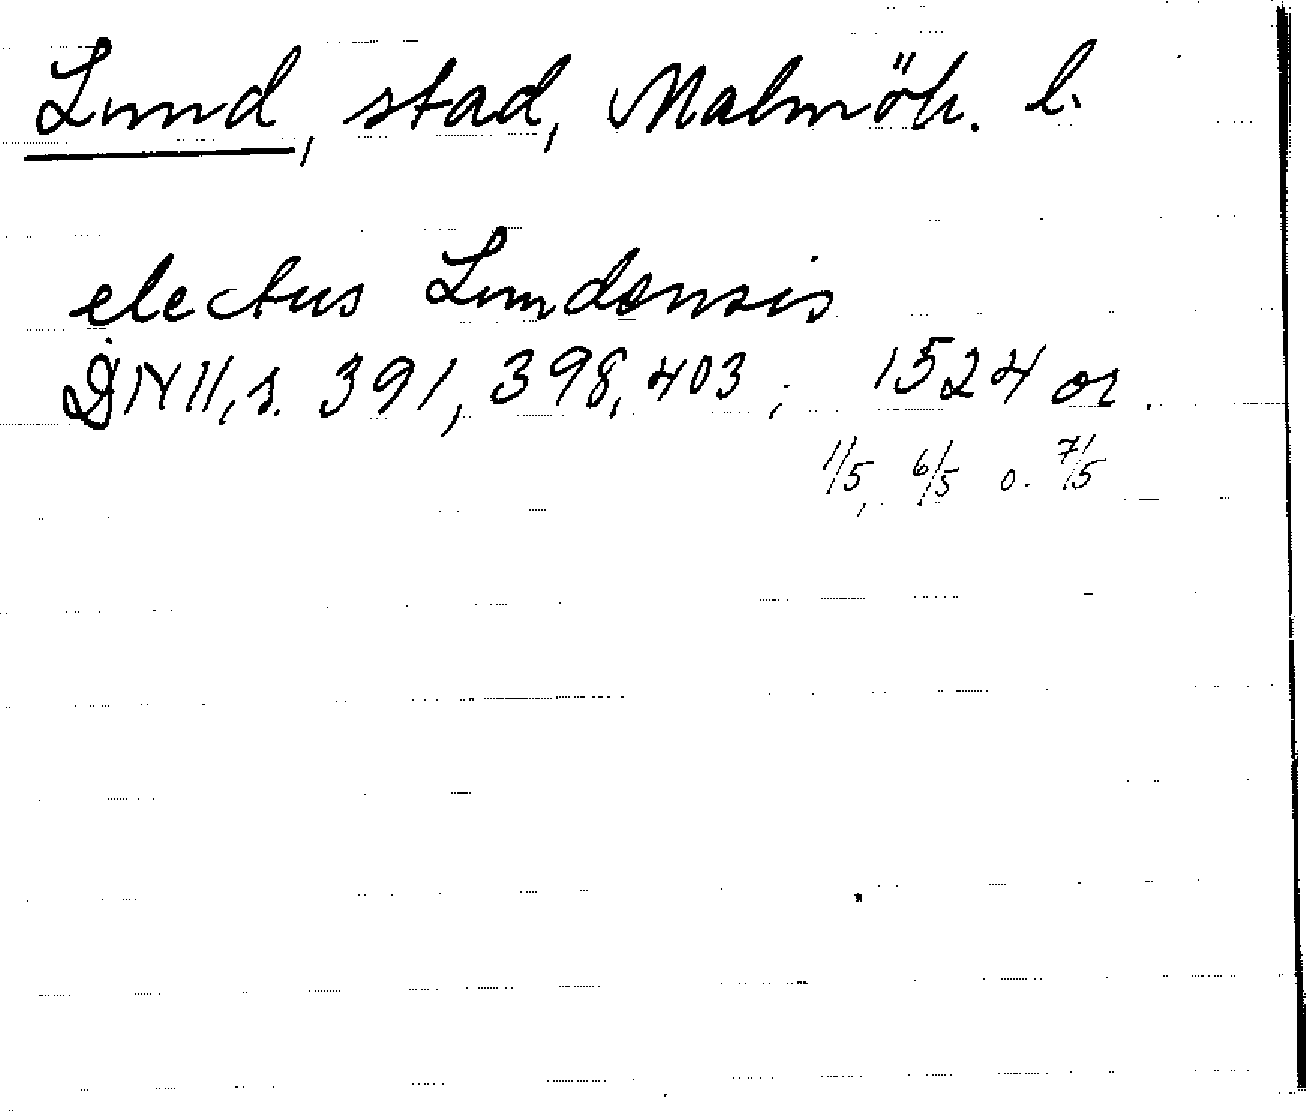 Lund, stad, Malmöh. l.
electus Lundensis
DN 11, s. 391, 398, 403; 1524 or.
1/5, 6/5 o. 7/5